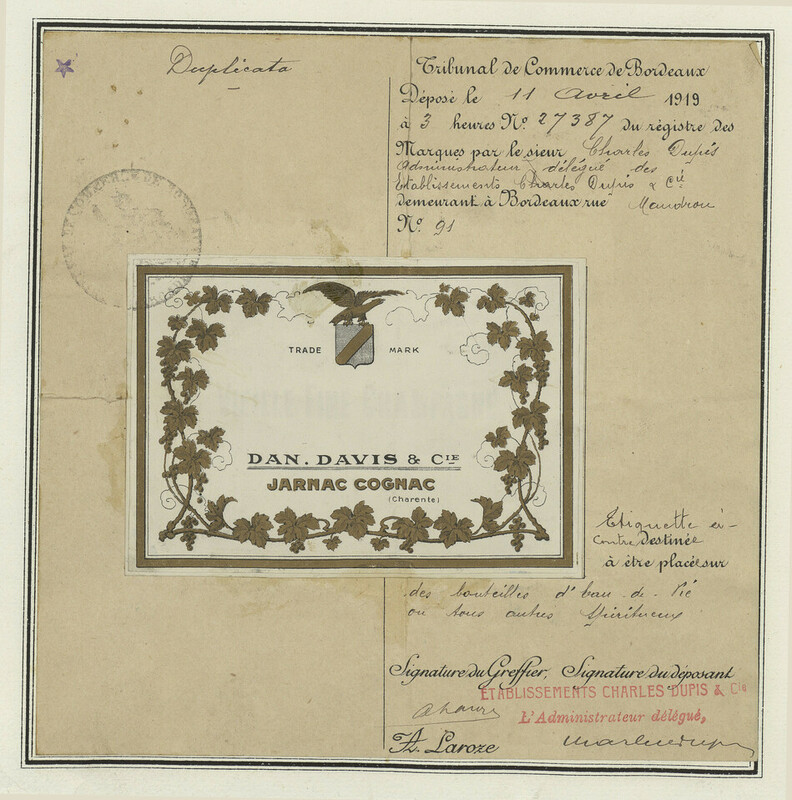 Duplicata
Tribunal de Commerce de Bordeaux
Déposé le 11 Avril 1919
à 3 heures No. 27387 du régistre des
Marques par le sieur Charles Dupis
Administrateur délégué des
Etablissements Charles Dupis & Cie
demeurant à Bordeaux rue Mandron
No. 91
TRADE MARK
DAN. DAVIS & CIE
JARNAC COGNAC
(Charente)
Etiquette ci-
contre Destinée
à être placée sur
des bouteilles d'eau-de-Vie
ou tous autres Spiritueux
Signature du Greffier, Signature du déposant
ETABLISSEMENTS CHARLES DUPIS & Cie
L'Administrateur délégué,
A. Laroze